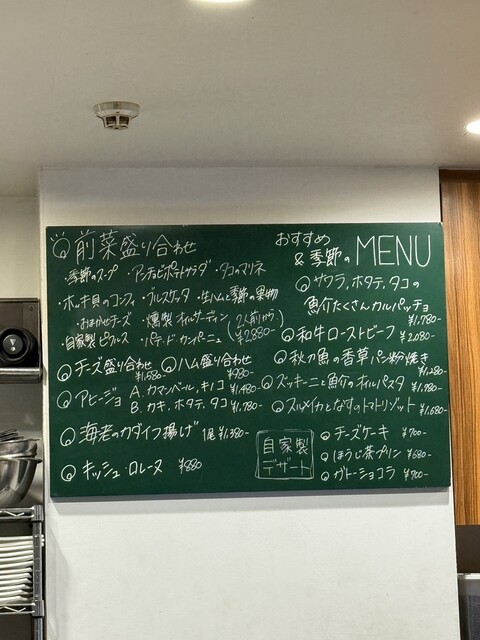 前菜盛り合わせ
・季節のスープ ・アンチョビポテトサラダ ・タコのマリネ
・ホッキ貝のコンフィ ・ブルスケッタ ・生ハムと季節の果物
・おまかせチーズ ・燻製オイルサーディン
・自家製ピクルス ・パテ・ド・カンパーニュ (2人前から) ¥2,880-
チーズ盛り合わせ ¥1,580- ハム盛り合わせ ¥980-
アヒージョ A.カマンベール,キノコ ¥1,480-
B.カキ,ホタテ,タコ ¥1,780-
海老のカダイフ揚げ 1尾 ¥1,380-
キッシュ・ロレーヌ ¥880
おすすめ
&季節の MENU
サワラ,ホタテ,タコの
魚介たくさんカルパッチョ
¥1,780-
和牛ローストビーフ ¥2,080-
秋刀魚の香草パン粉焼き
¥1,280-
ズッキーニと魚介のオイルパスタ ¥1,780-
スルメイカとなすのトマトリゾット ¥1,680-
自家製
デザート
チーズケーキ ¥700-
ほうじ茶プリン ¥680-
ガトーショコラ ¥700-